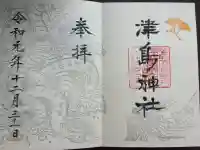 津島神社
奉拝
令和元年十二月三十一日